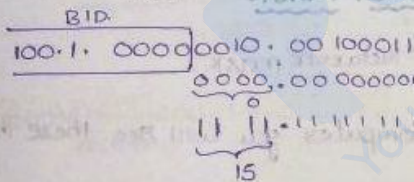 BID.
100.1. 00000010. 00 100011
0000.00 000000
0
11 11.11 11 11 11
15